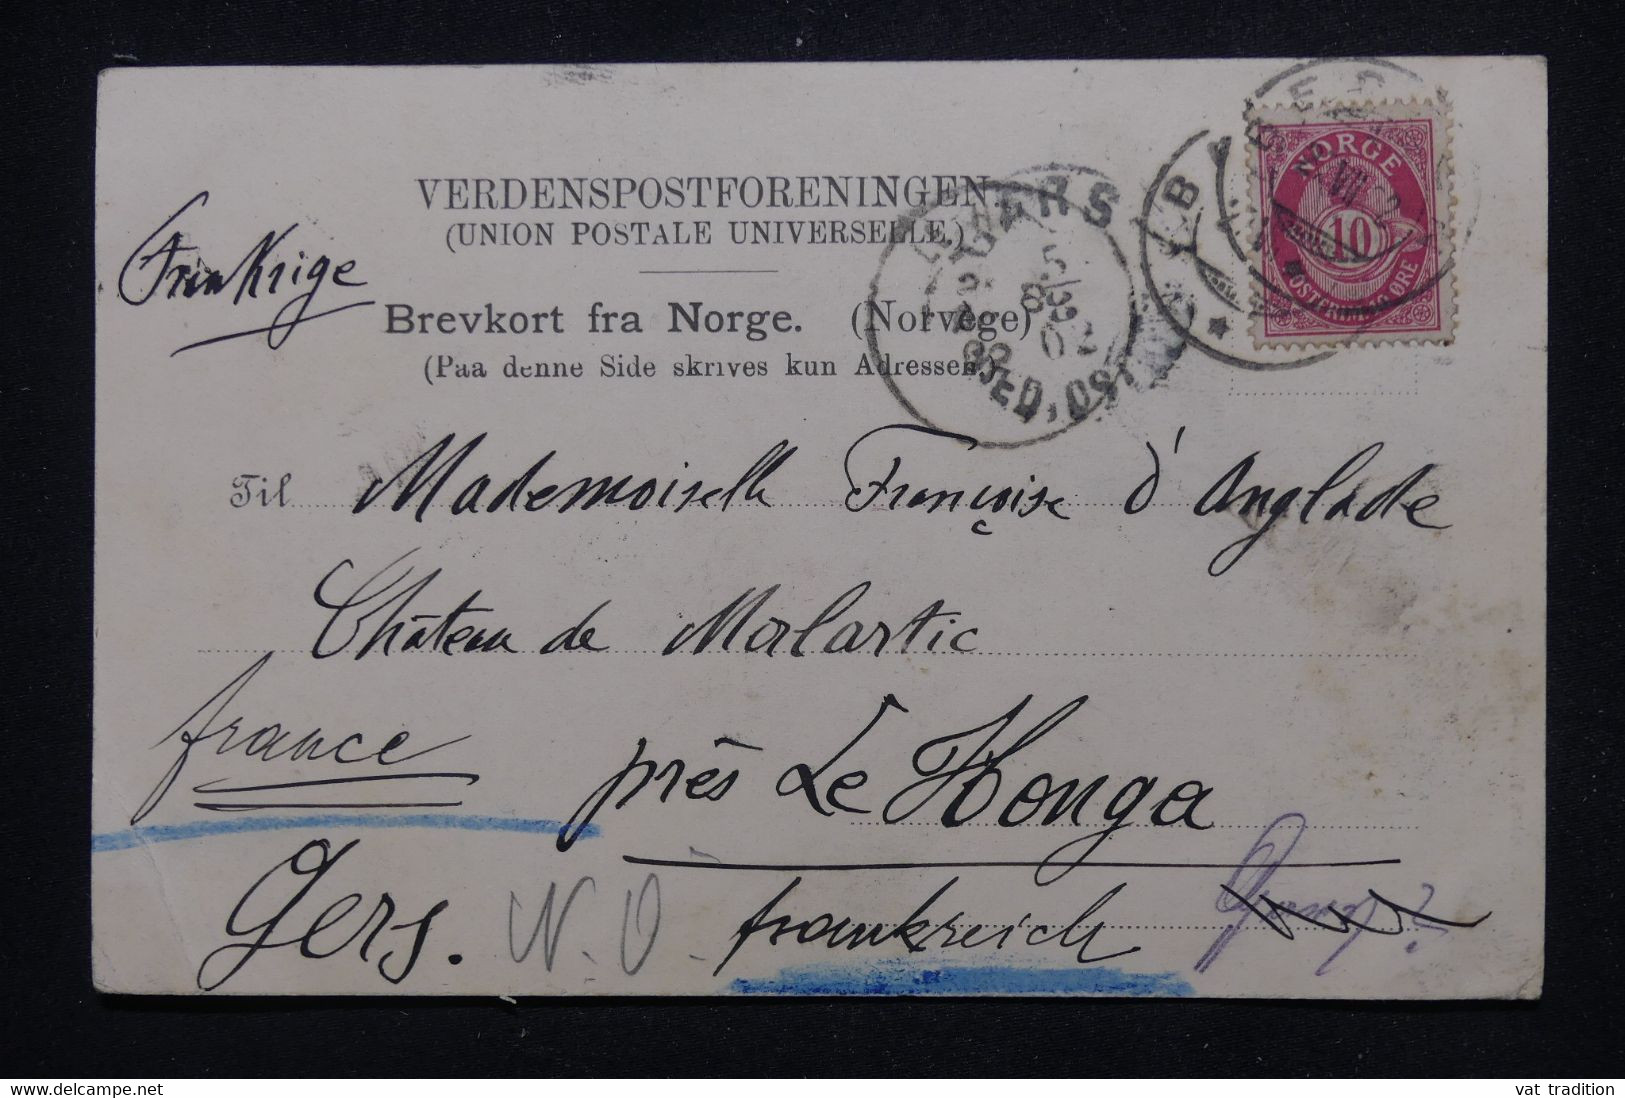 VERDENSPOSTFORENINGEN.
(UNION POSTALE UNIVERSELLE.)
Frankrige
Brevkort fra Norge. (Norvège)
(Paa denne Side skrives kun Adressen)
NORGE
10
POSTFRIM ØRE
Til Mademoiselle Françoise d'Anglade
Château de Malartic
france
près Le Houga
Gers. N.O. frankreich
vat tradition
www.delcampe.net